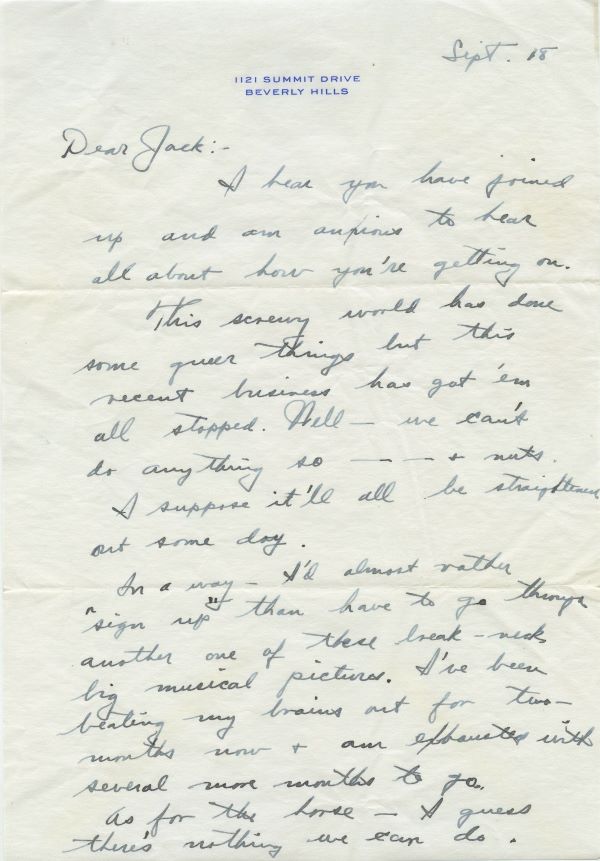 Sept. 18
1121 SUMMIT DRIVE
BEVERLY HILLS
Dear Jack:-
I hear you have joined
up and am anxious to hear
all about how you're getting on.
This screwy world has done
some queer things but this
recent business has got 'em
all stopped. Well - we can't
do anything so - - - + nuts.
I suppose it'll all be straightened
out some day.
In a way - I'd almost rather
"sign up" than have to go through
another one of these break-neck
big musical pictures. I've been
beating my brains out for two-
months now + am exhausted with
several more months to go.
As for the horse - I guess
there's nothing we can do.